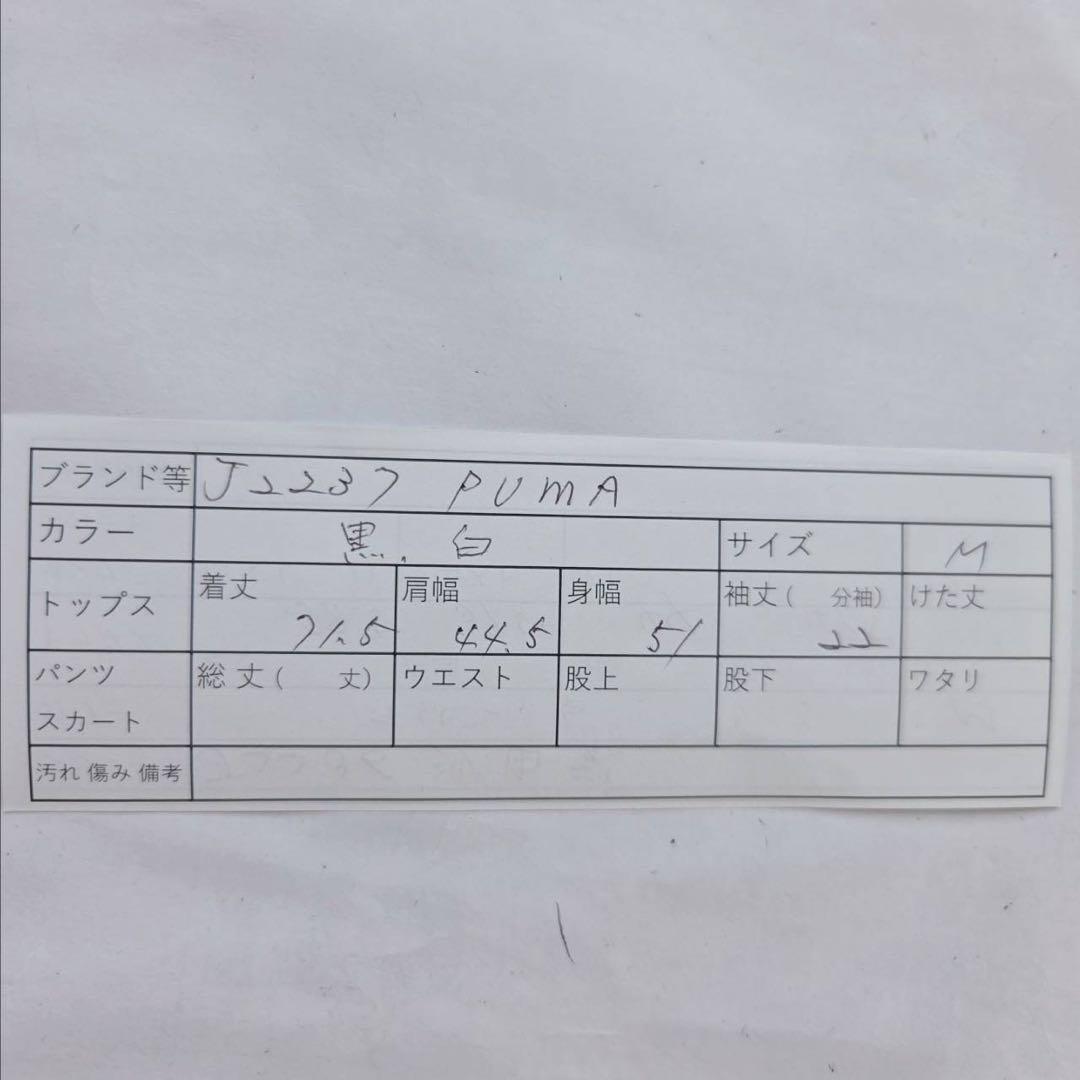 ブランド等 J2237 PUMA
カラー 黒.白 サイズ M
トップス 着丈 71.5 肩幅 44.5 身幅 51 袖丈( 分袖) 22 けた丈
パンツ 総丈( 丈) ウエスト 股上 股下 ワタリ
スカート
汚れ 傷み 備考